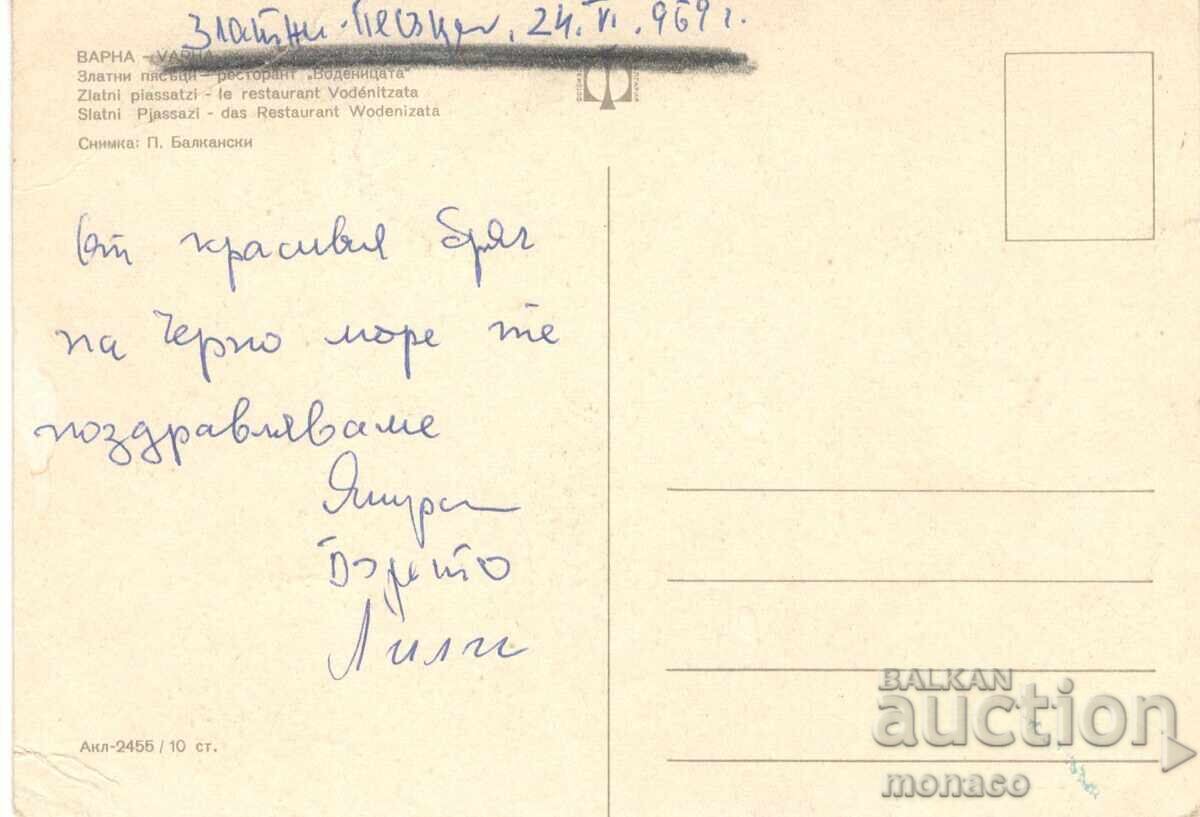 Златни Пясъци, 24.VI.969г.
ВАРНА - VARNA
Златни пясъци - ресторант „Воденицата"
Zlatni piassatzi - le restaurant Vodénitzata
Slatni Pjassazi - das Restaurant Wodenizata
Снимка: П. Балкански
От красивия бряг
на Черно море те
поздравляваме
Лили
Акл-2455 / 10 ст.
BALKAN
auction
monaco